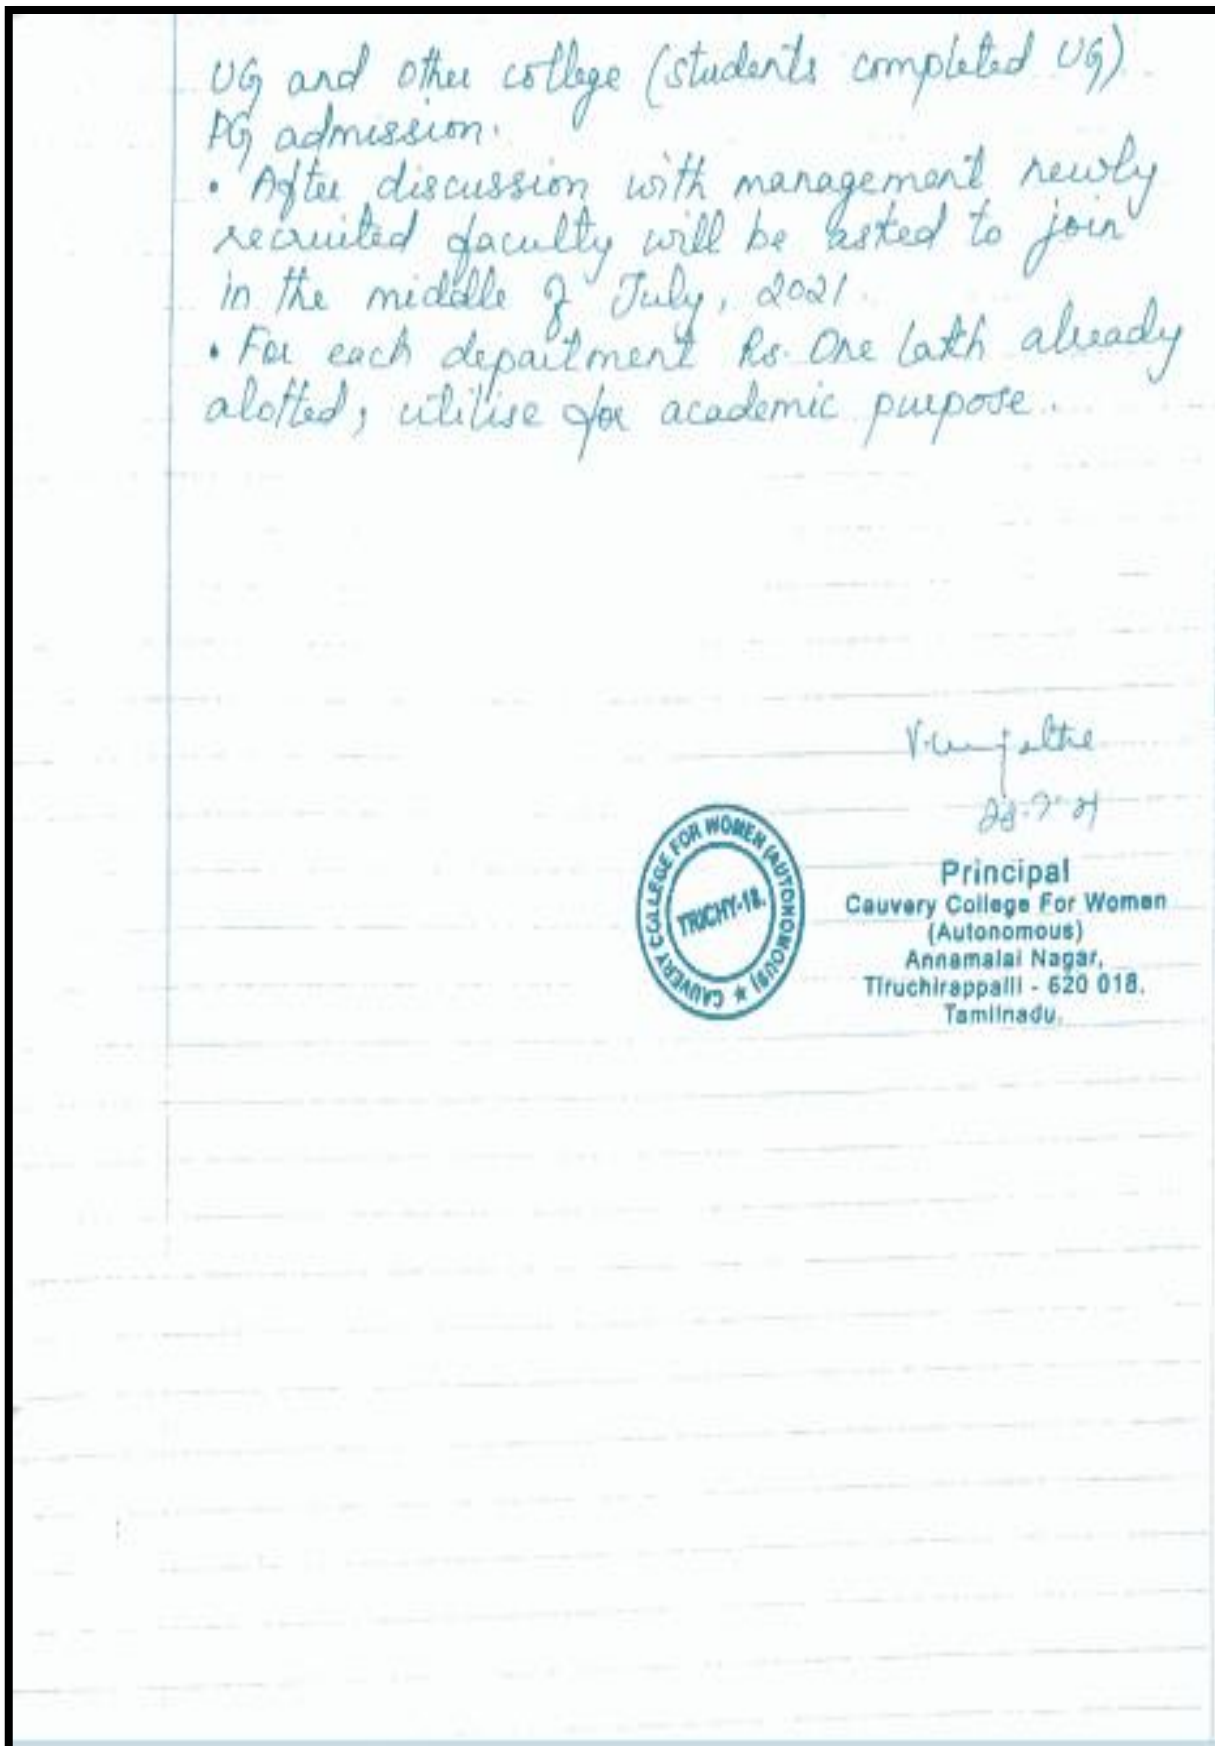 UG and other college (students completed UG)
PG admission.
• After discussion with management newly
recruited faculty will be asked to join
in the middle of July, 2021.
• For each department Rs. One lakh already
alotted, utilise for academic purpose.
CAUVERY COLLEGE FOR WOMEN (AUTONOMOUS) ★
TRICHY-18.
Principal
Cauvery College For Women
(Autonomous)
Annamalai Nagar,
Tiruchirappalli - 620 018.
Tamilnadu.